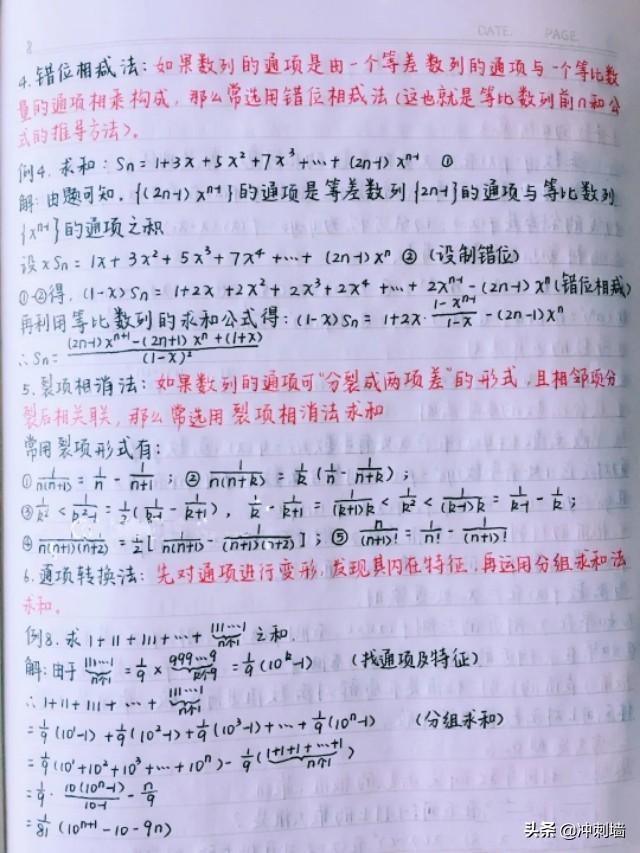 8
DATE. PAGE
4. 错位相减法：如果数列的通项是由一个等差数列的通项与一个等比数
量的通项相乘构成，那么常选用错位相减法（这也就是等比数列前n和公
式的推导方法）。
例4. 求和：Sn = 1+3x+5x²+7x³+⋯+(2n-1)xⁿ⁻¹ ①
解：由题可知，{(2n-1)xⁿ⁻¹}的通项是等差数列{2n-1}的通项与等比数列
{xⁿ⁻¹}的通项之积
设xSn = 1x+3x²+5x³+7x⁴+⋯+(2n-1)xⁿ ② （设制错位）
①-②得，(1-x)Sn = 1+2x+2x²+2x³+2x⁴+⋯+2xⁿ⁻¹-(2n-1)xⁿ（错位相减）
再利用等比数列的求和公式得：(1-x)Sn = 1+2x·(1-xⁿ⁻¹)/(1-x) -(2n-1)xⁿ
∴Sn = ((2n-1)xⁿ⁺¹-(2n+1)xⁿ+(1+x))/(1-x)²
5. 裂项相消法：如果数列的通项可“分裂成两项差”的形式，且相邻项分
裂后相关联，那么常选用裂项相消法求和
常用裂项形式有：
① 1/n(n+1) = 1/n - 1/(n+1)；② 1/n(n+k) = 1/k (1/n - 1/(n+k))；
③ 1/k² < 1/(k²-1) = 1/2 (1/(k-1) - 1/(k+1))，1/k - 1/(k+1) = 1/(k+1)k < 1/k² < 1/(k-1)k = 1/(k-1) - 1/k；
④ 1/n(n+1)(n+2) = 1/2 [1/n(n+1) - 1/(n+1)(n+2)]；⑤ n/(n+1)! = 1/n! - 1/(n+1)!
6. 通项转换法：先对通项进行变形，发现其内在特征，再运用分组求和法
求和。
例8. 求1+11+111+⋯+111⋯1 n个1 之和.
解：由于 111⋯1 n个1 = 1/9 × 999⋯9 k个9 = 1/9 (10ᵏ-1) （找通项及特征）
∴1+11+111+⋯+111⋯1 n个1
= 1/9 (10¹-1)+1/9 (10²-1)+1/9 (10³-1)+⋯+1/9 (10ⁿ-1) （分组求和）
= 1/9 (10¹+10²+10³+⋯+10ⁿ) - 1/9 (1+1+1+⋯+1 n个1)
= 1/9 · 10(10ⁿ-1)/(10-1) - n/9
= 1/81 (10ⁿ⁺¹-10-9n)
头条 @冲刺墙